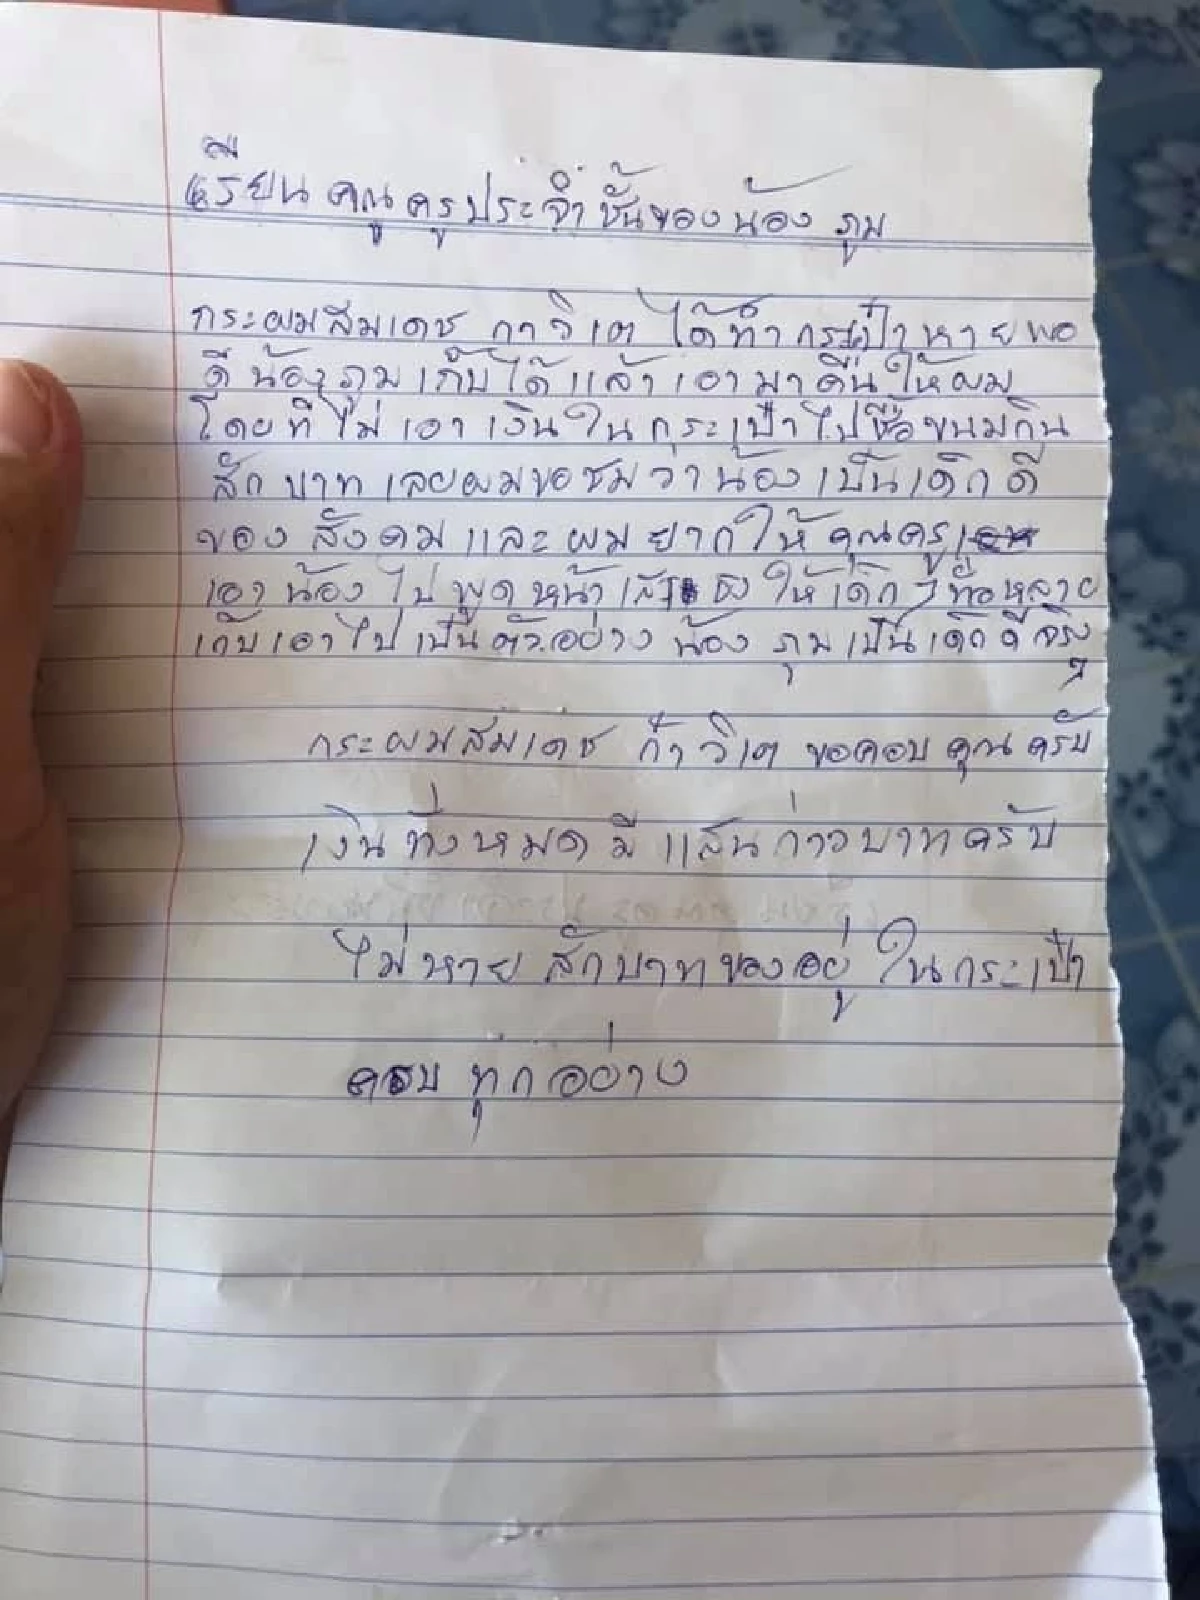 เรียน คุณครูประจำชั้นของน้อง ภูม
กระผมสมเดช กาวิเต ได้ทำกระเป๋าหายพอ
ดีน้องภูมเก็บได้แล้วเอามาคืนให้ผม
โดยที่ไม่เอาเงินในกระเป๋าไปซื้อขนมกิน
สักบาทเลยผมขอชมว่าน้องเป็นเด็กดี
ของสังคมและผมยากให้คุณครู
เอาน้องไปพูดหน้าเสาธงให้เด็กๆทั้งหลาย
เก็บเอาไปเป็นตัวอย่าง น้อง ภุมเป็นเด็กดีจริง
ๆ
กระผมสมเดช ก๋าวิเต ขอคอบคุณครับ
เงินทั้งหมดมีแสนก่าวบาทครับ
ไม่หายสักบาทของอยู่ในกระเป๋า
ครบทุกอย่าง